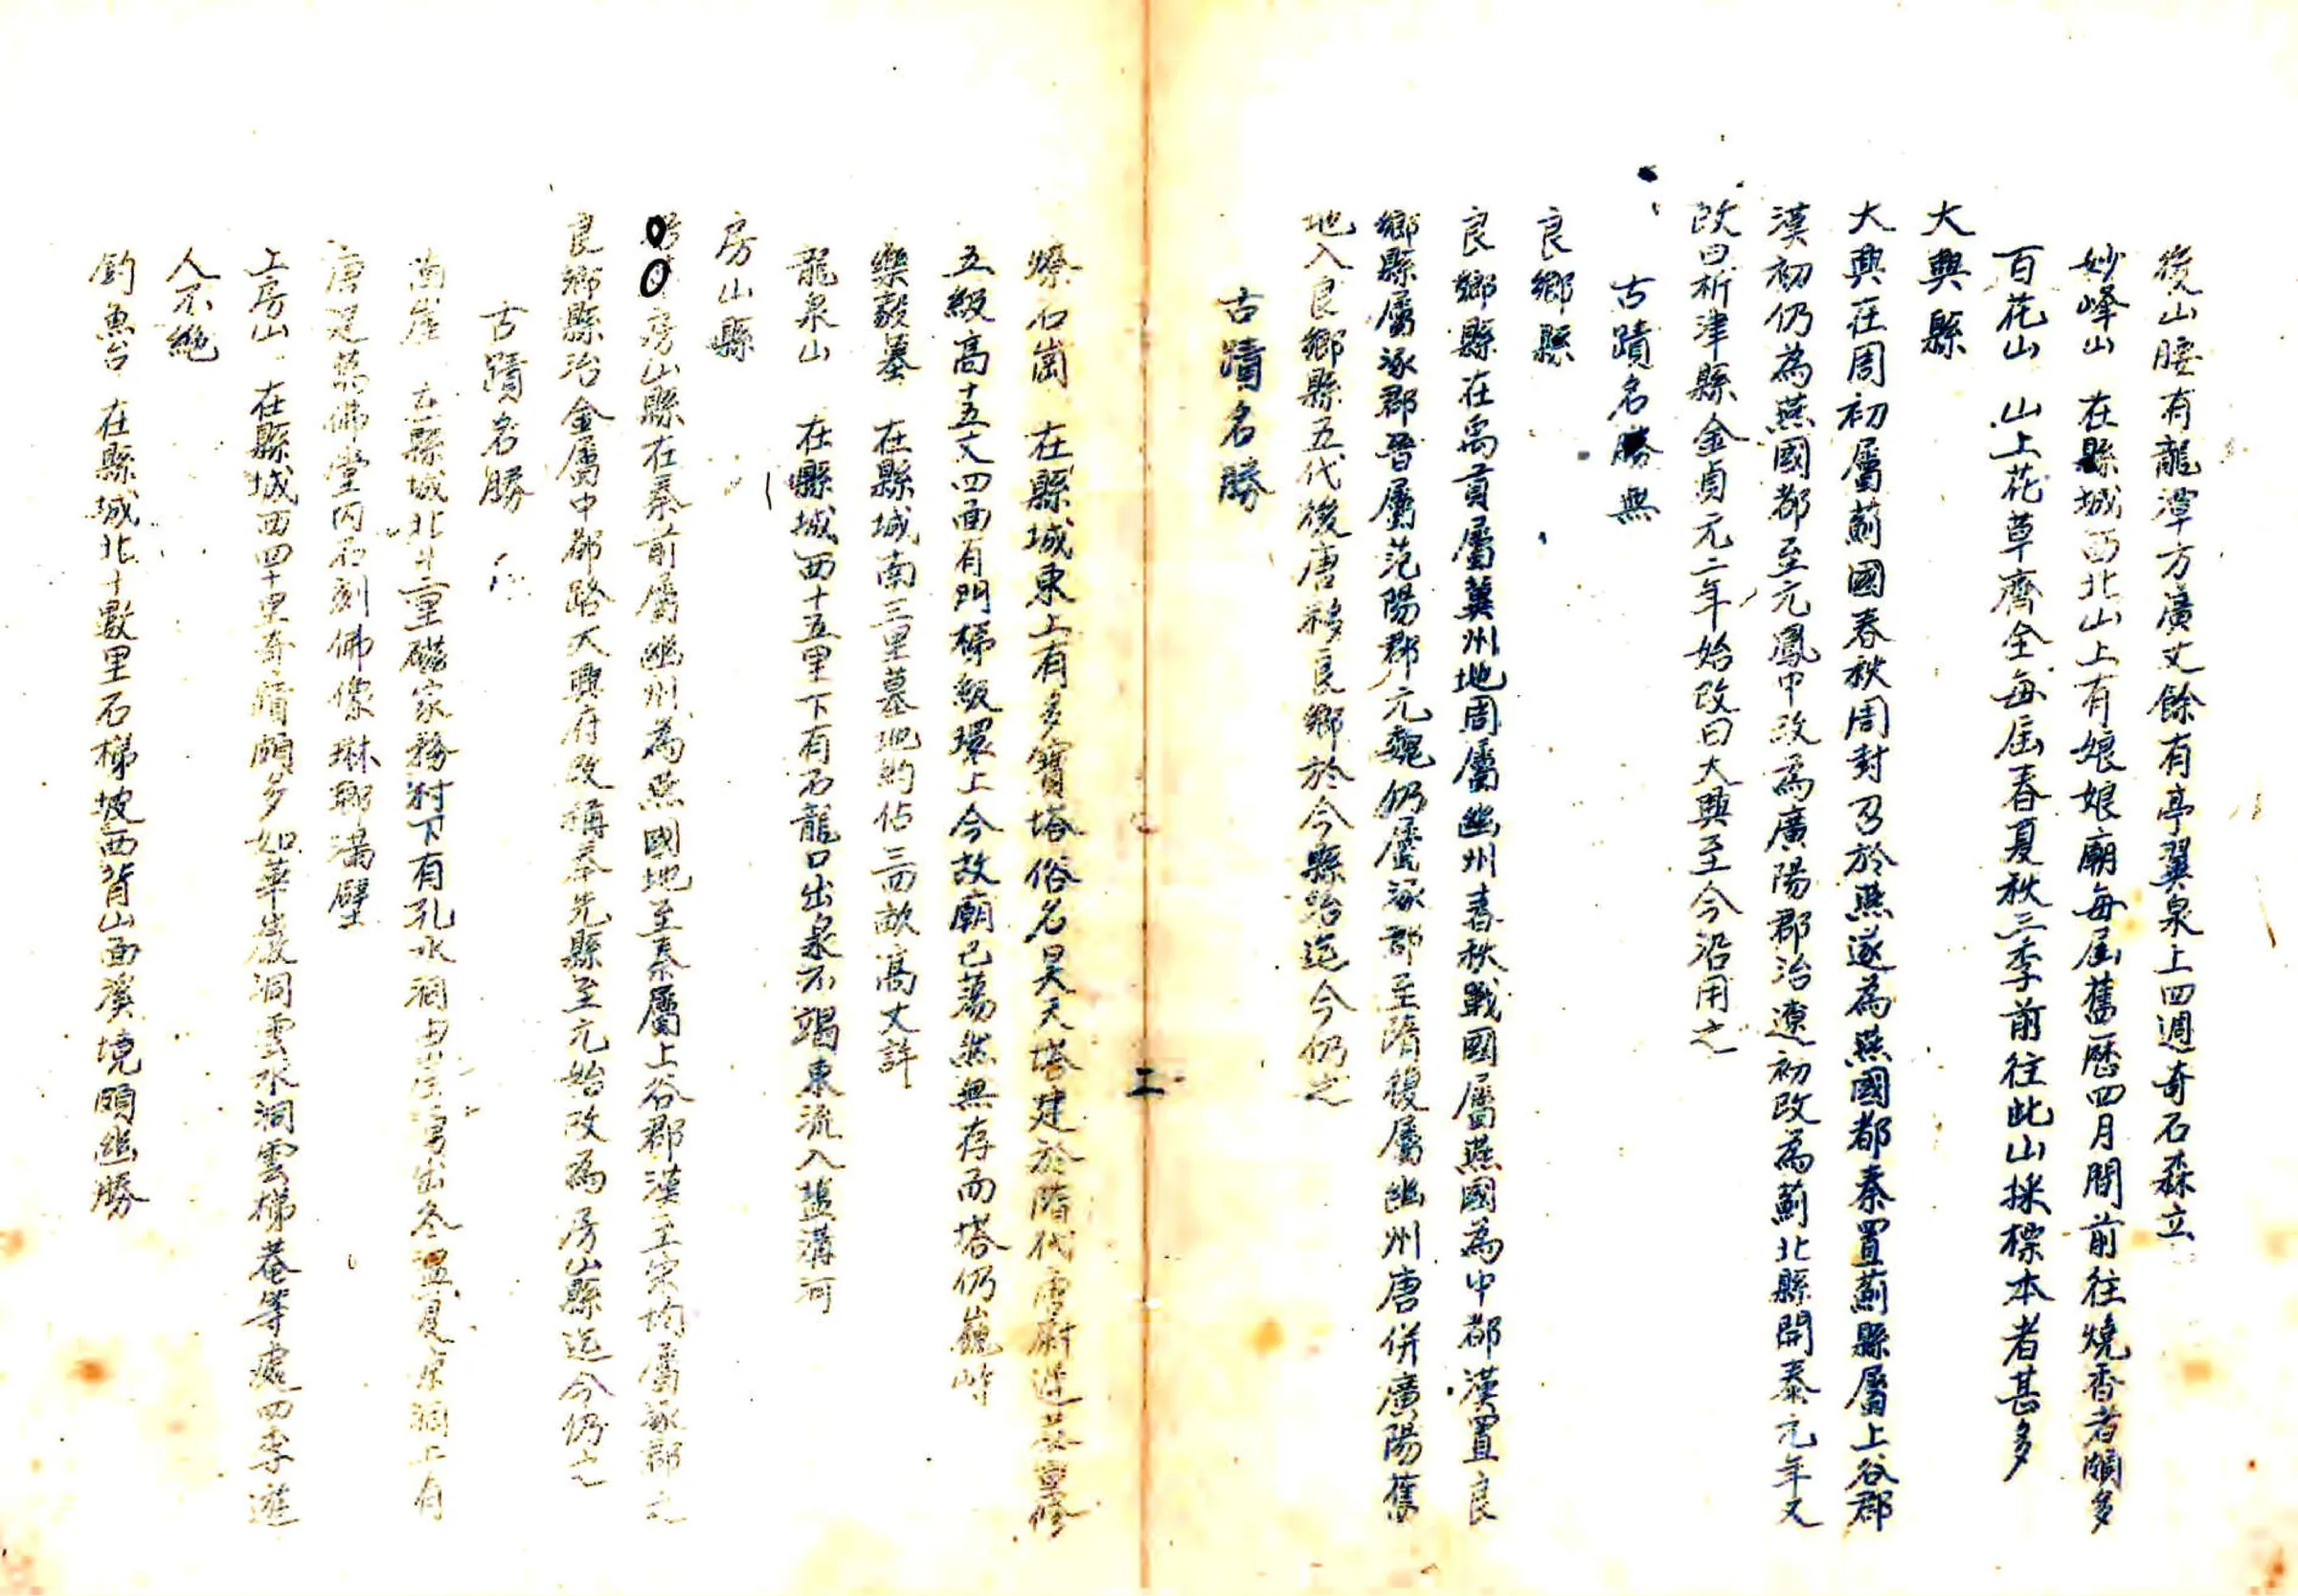 後山腰有龍潭方廣丈餘有亭翼泉上四週奇石森立
妙峰山 在縣城西北山上有娘娘廟每屆舊歷四月間前往燒香者頗多
百花山 山上花草齊全每屆春夏秋三季前往此山採標本者甚多
大興縣
大興在周初屬薊國春秋周封召於燕遂為燕國都秦置薊縣屬上谷郡
漢初仍為燕國都至元鳳中改為廣陽郡治遼初改為薊北縣開泰元年又
改曰析津縣金貞元二年始改曰大興至今沿用之
古蹟名勝無
良鄉縣
良鄉縣在禹貢屬冀州地周屬幽州春秋戰國屬燕國為中都漢置良
鄉縣屬涿郡晉屬范陽郡元魏仍屬涿郡至隋復屬幽州唐併廣陽舊
地入良鄉縣五代後唐移良鄉於今縣治迄今仍之
古蹟名勝
二
燎石崗 在縣城東上有多寶塔俗名昊天塔建於隋代唐尉遲恭重修
五級高十五丈四面有門梯級環上今故廟已蕩然無存而塔仍巍峙
樂毅墓 在縣城南三里墓地約佔三四畝高丈許
龍泉山 在縣城西十五里下有石龍口出泉不竭東流入鹽溝河
房山縣
房山縣在秦前屬幽州為燕國地至秦屬上谷郡漢至宋均屬涿郡之
良鄉縣治金屬中都路大興府改稱奉先縣至元始改為房山縣迄今仍之
古蹟名勝
在縣城北廿里磁家務村下有孔水洞由崖湧出冬溫夏涼洞上有
唐建萬佛堂內石刻佛像琳瑯滿壁
上房山 在縣城西四十里奇蹟頗多如華嚴洞雲水洞雲梯菴等處四季遊
人不絕
釣魚台 在縣城北十數里石梯坡西背山面溪境頗幽勝